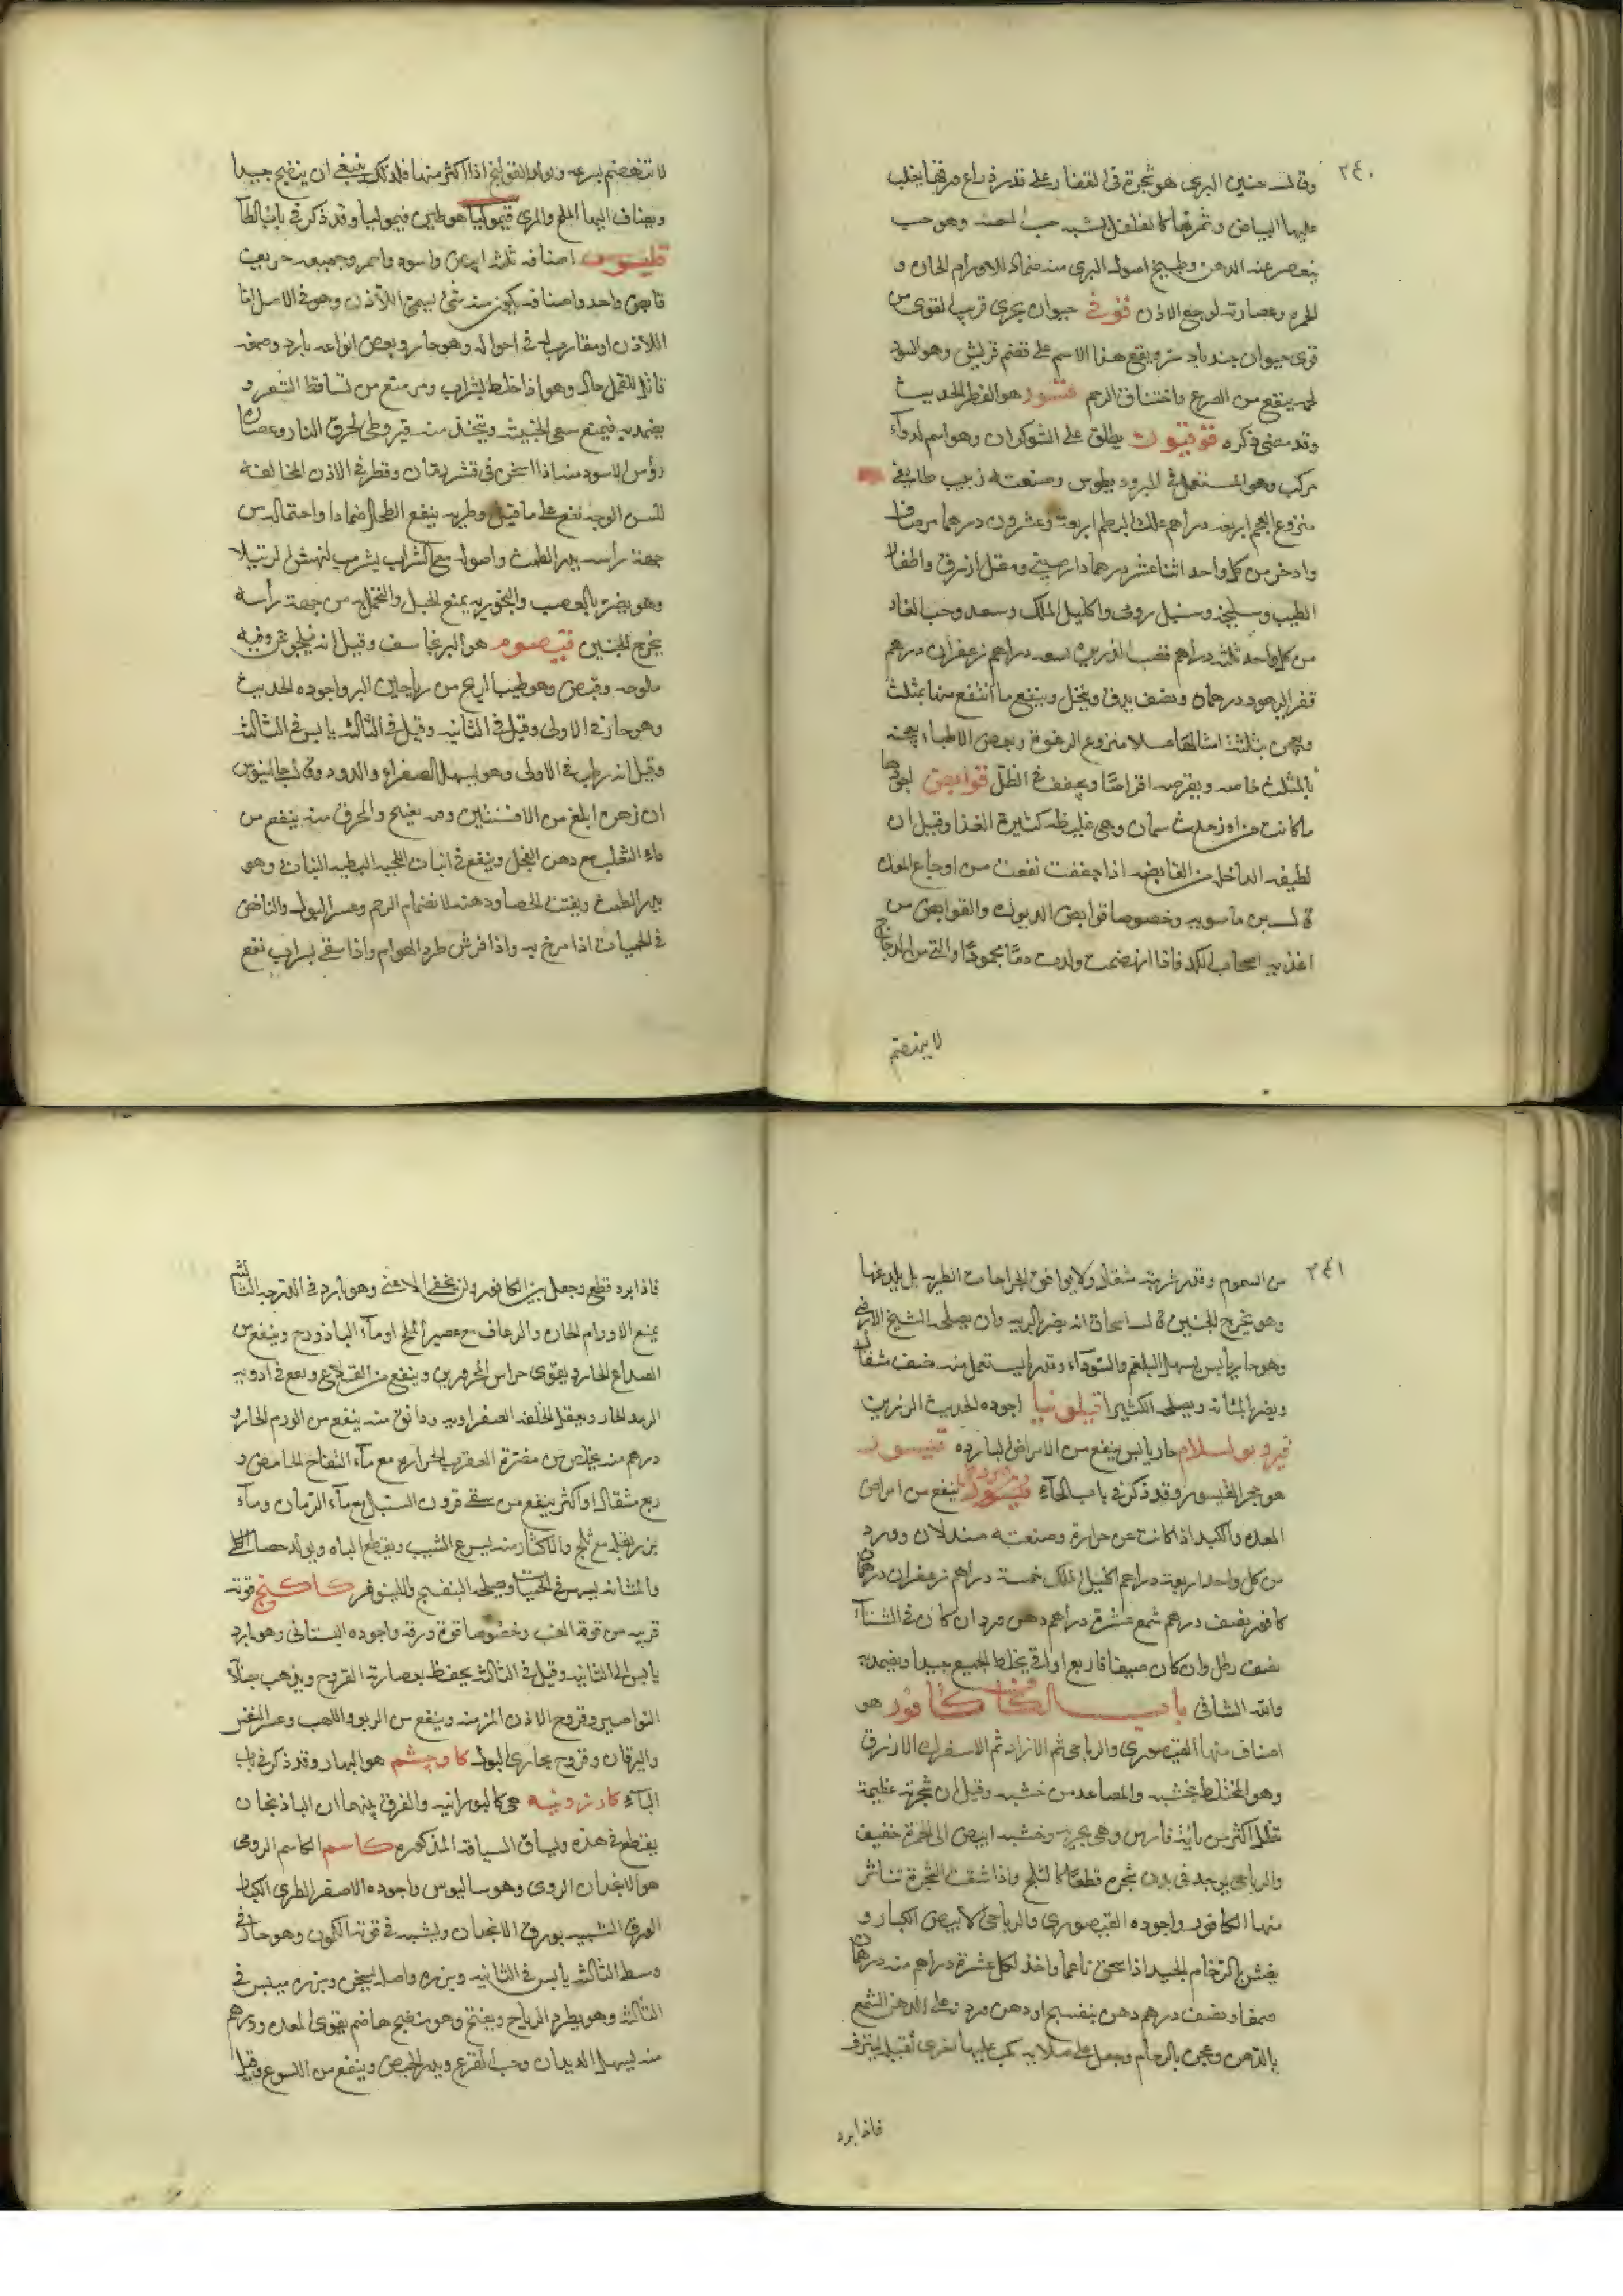 ٣٤٠
وقال حنين البري هو شجرة في القفار على قدر ذراع ورقها يغلب
عليها البياض وثمرتها كالفلفل يشبه حب السمنة وهو حب
ينعصر عنه الدهن وطبيخ اصوله البري منه ضماد للاورام الحارة و
الحمرة وعصارته لوجع الاذن قوقي حيوان بحري قريب القوى من
قوى حيوان جندبادستر ويقع هذا الاسم على قضم قريش وهو السود
لحمه ينفع من الصرع واختناق الرحم هو الفطر الحديث
وقد مضى ذكره قوقيون يطلق على الشوكران وهو اسم لدواء
مركب وهو المستعمل في المثروديطوس وصنعته زبيب طايفي
منزوع العجم اربعة دراهم علك البطم اربعة وعشرون درهما مر صاف
واذخر من كل واحد اثنا عشر درهما دارصيني ومقل ازرق واظفار
الطيب وسليخة وسنبل رومي واكليل الملك وسعد وحب الغار
من كل واحد ثلثة دراهم قصب الذريرة تسعة دراهم زعفران درهم
قفر اليهود درهمان ونصف يدق وينخل وينقع ما انتقع منها بمثلث
ويعجن بثلثة امثالها عسلا منزوع الرغوة وبعض الاطباء يعجنه
بالمثلث خاصة ويقرصه اقراصًا ويجفف في الظلّ قوانص اجودها
ما كانت من اوز حديث سمان وهي غليظة كثيرة الغذا وقيل ان
لطيفه الداخل من القانصة اذا جففت نفعت من اوجاع المعدة
قال بن ماسويه وخصوصا قوانص الديوك والقوانص من
اغذية اصحاب الكد فاذا انهضمت ولدت دمًا محمودًا والتي من الدجاج
لا ينهضم
لا تنهضم بسرعة وتولد القولنج اذا اكثر منها فلذلك ينبغي ان ينضج جيدا
ويضاف اليها الملح والمري قيموليا هو طين قيموليا وقد ذكر في باب الطآ
اصنافه ثلثة ابيض واسود واحمر وجميعه حريف
قابض واحد واصنافه يكون منه شيء يسمى اللاذن وهو في الاصل اما
اللاذن او مقاربا له في احواله وهو حار وبعض انواعه بارد وصمغه
قاتل للقمل جال وهو اذا خلط بشراب ومر منع من تساقط الشعر و
يضمد به فيمنع سعي الخبيثة ويتخذ منه قيروطي لحرق النار وعصارة
رؤس الاسود منه اذا اسخن في قشر رمان وقطر في الاذن المخالفة
للسن الوجعة نفع على ما قيل وطريه ينفع الطحال ضمادا واحتماله من
جهة رأسه يدر الطمث واصوله مع الشراب يشرب لنهش الرتيلا
وهو يضر بالعصب والبخور به يمنع الحبل والتحمل به من جهة رأسه
يخرج الجنين قيصوم هو البرنجاسف وقيل انه وفيه
ملوحة وقبض وهو طيب الريح من رياحين البر واجوده الحديث
وهو حار في الاولى وقيل في الثانية وقيل في الثالثة يابس في الثالثة
وقيل انه رطب في الاولى وهو يسهل الصفراء والدود وقال جالينوس
ان زهره ابلغ من الافسنتين وفيه تفتيح والمحرق منه ينفع من
داء الثعلب مع دهن الفجل وينفع في انبات اللحية البطية النبات وهو
يدر الطمث ويفتت الحصا ودهنه لانضمام الرحم وعسر البول والنافض
في الحميات اذا مرخ به واذا فرش طرد الهوام واذا سقي بشراب نفع
٣٤١
من السموم وقدر شربته مثقال ولا يوافق الجراحات الطرية بل يلذعها
وهو يخرج الجنين قال اسحاق انه يضر بالرية وان يصلحه الشيح الارمني
وهو حار يابس يسهل البلغم والسودآء وقدر ما يستعمل منه نصف مثقال
ويضر بالمثانة ويصلحه الكثيرا اجوده الحديث الرزين
حار يابس ينفع من الامراض الباردة قيسور
هو حجر القيسور وقد ذكر في باب الحآء ينفع من امراض
المعدة والكبد اذا كانت عن حرارة وصنعته صندلان وورد
من كل واحد اربعة دراهم اكليل الملك خمسة دراهم زعفران درهمان
كافور نصف درهم شمع عشرة دراهم دهن ورد ان كان في الشتآء
نصف رطل وان كان صيفا فاربع اواقي يخلط الجميع جيدا ويضمد به
والله الشافي باب الكاف كافور هو
اصناف منها القيصوري والرباحي ثم الازاد ثم الاسفرك الازرق
وهو المختلط بخشبه والمصاعد من خشبه وقيل ان شجرته عظيمة
تظل اكثر من ماية فارس وهي بحرية وخشبه ابيض الى الحمرة خفيف
والرباحي يوجد في بدن شجره قطعًا كالثلج واذا شقت الشجرة تناثر
منها الكافور واجوده القيصوري والرباحي الابيض الكبار و
يغش بالرخام الجيد اذا سحق ناعما واخذ لكل عشرة دراهم منه درهمان
صمغا ونصف درهم دهن بنفسج او دهن ورد
بالدهن وعجن بالرخام وجعل على صلاية كب عليها اخرى
فاذا برد
فاذا برد قطع وجعل بين الكافور ولن يخفى الا عنى وهو بارد في الدرجة الثالثة
يمنع الاورام الحارة والرعاف مع عصير البلح او مآء الباذروج وينفع من
الصداع الحار ويقوى حواس المحرورين وينفع من القلاع ويقع في ادوية
الرمد الحار ويعقل الخلفة الصفراوية ودانق منه ينفع من الورم الحار و
درهم منه يخلص من مضرة العقرب الجرارة مع مآء التفاح الحامض و
ربع مثقال او اكثر ينفع من سقي قرون السنبل مع مآء الرمان ومآء
بزر بقلة مع ثلج والاكثار منه يسرع الشيب ويقطع الباه ويولد حصا الكلى
والمثانة يسهر في الحميات ويصلحه البنفسج واللينوفر كاكنج قوته
قريبة من قوة العنب وخصوصا قوة ورقه واجوده البستاني وهو بارد
يابس الى الثانية وقيل في الثالثة يحفظ بعصارته القروح ويذهب صلابة
النواصير وقروح الاذن المزمنة وينفع من الربو واللهب وعسر النفس
واليرقان وقروح مجاري البول كاوجشم هو البهار وقد ذكر في باب
البآء كازرونية هي كالبورانية والفرق بينهما ان الباذنجان
يقطع في هذه ويساق السياقة المذكورة كاشم الكاشم الرومي
هو الانجدان الرومي وهو ساليوس واجوده الاصفر الطري الكبار
الورق الشبيه بورق الانجدان ويشبه في قوته الكمون وهو حار في
وسط الثالثة يابس في الثانية وبزره واصله يسخن وبزره ييبس في
الثالثة وهو يطرد الرياح ويفتح وهو منضج هاضم يقوي المعدة ودرهم
منه يسهل الديدان وحب القرع ويدر الحيض وينفع من اللسوع وقيل